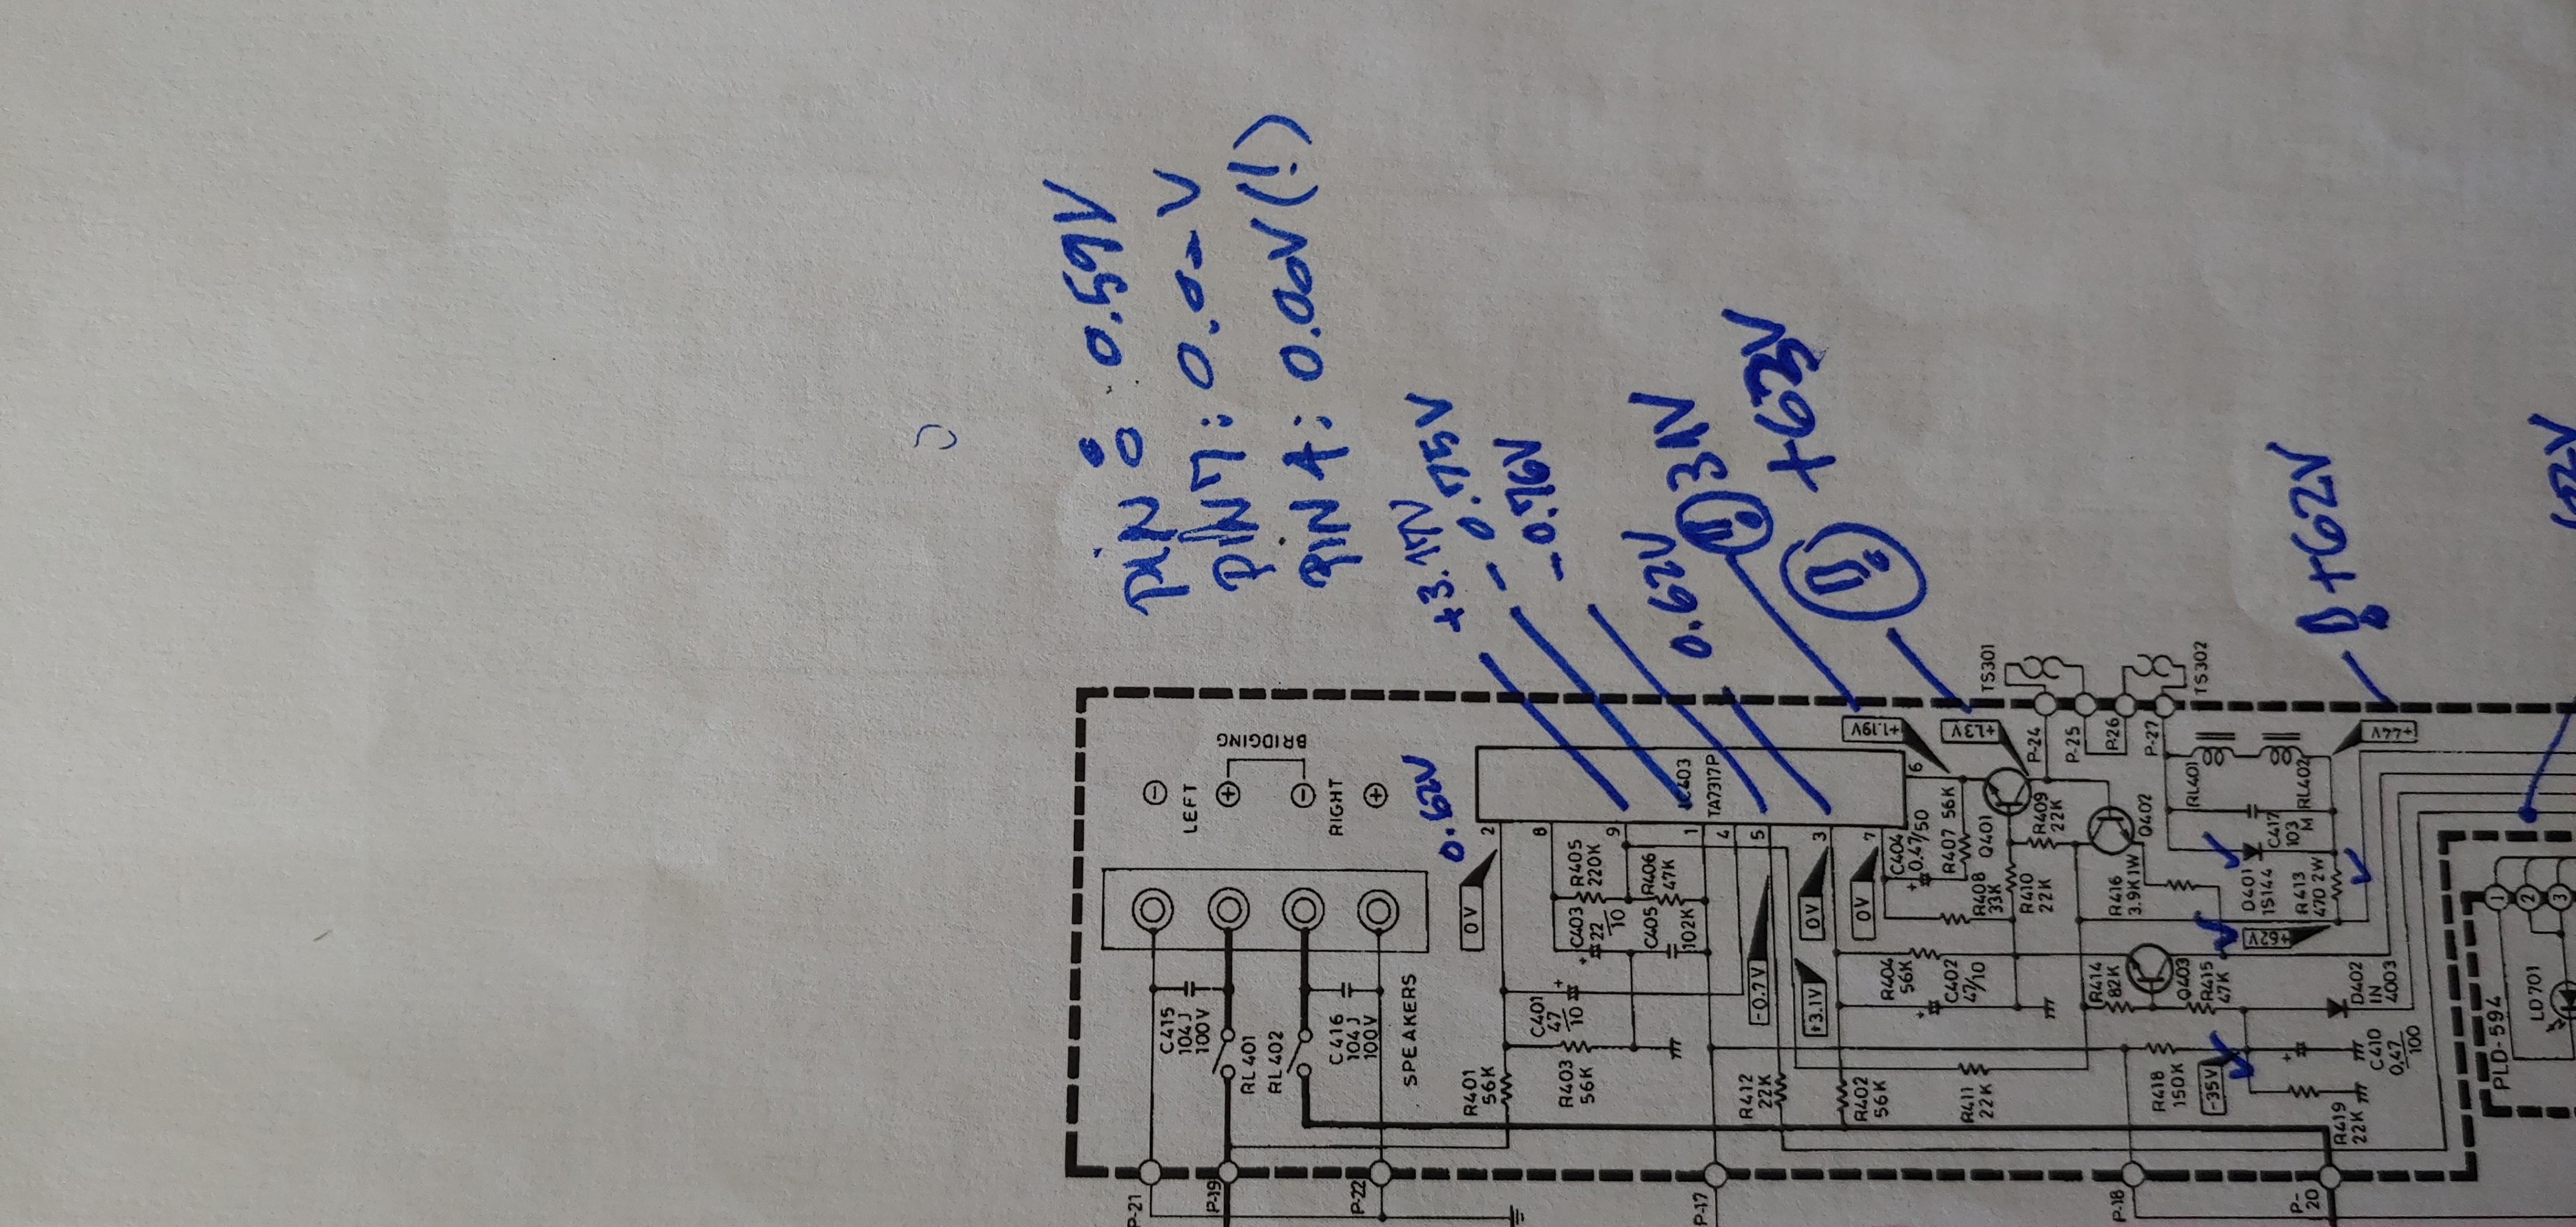 PIN 8: 0.59V
PIN 7: 0.0-V
PIN 4: 0.00V (!)
+3.17V
- 0.75V
-0.76V
0.62V
31V
+62V
+62V
62V
0.62V
BRIDGING
LEFT
RIGHT
SPEAKERS
C415
104J
100V
RL401
RL402
C416
104J
100V
P-21
P-19
P-22
P-17
P-18
P-20
0V
2
8
9
1
4
5
3
7
6
TA7317P
R401
56K
R403
56K
C401
47
10
C403
22
10
R405
220K
C405
102K
R406
47K
-0.7V
+3.1V
0V
0V
R412
22K
R402
56K
R411
22K
R404
56K
C402
47/10
C404
0.47/50
R407 56K
R408
33K
Q401
R409
22K
R410
22K
+1.19V
+1.3V
TS301
TS302
P-24
P-25
P-26
P-27
Q402
RL401
RL402
C417
103
M
+44V
R416
3.9K 1W
D401
1S144
R413
470 2W
+62V
R414
82K
Q403
R415
47K
R418
150K
-35V
R419
22K
D402
IN
4003
C410
0.47
100
PLD-594
LD701
1
2
3